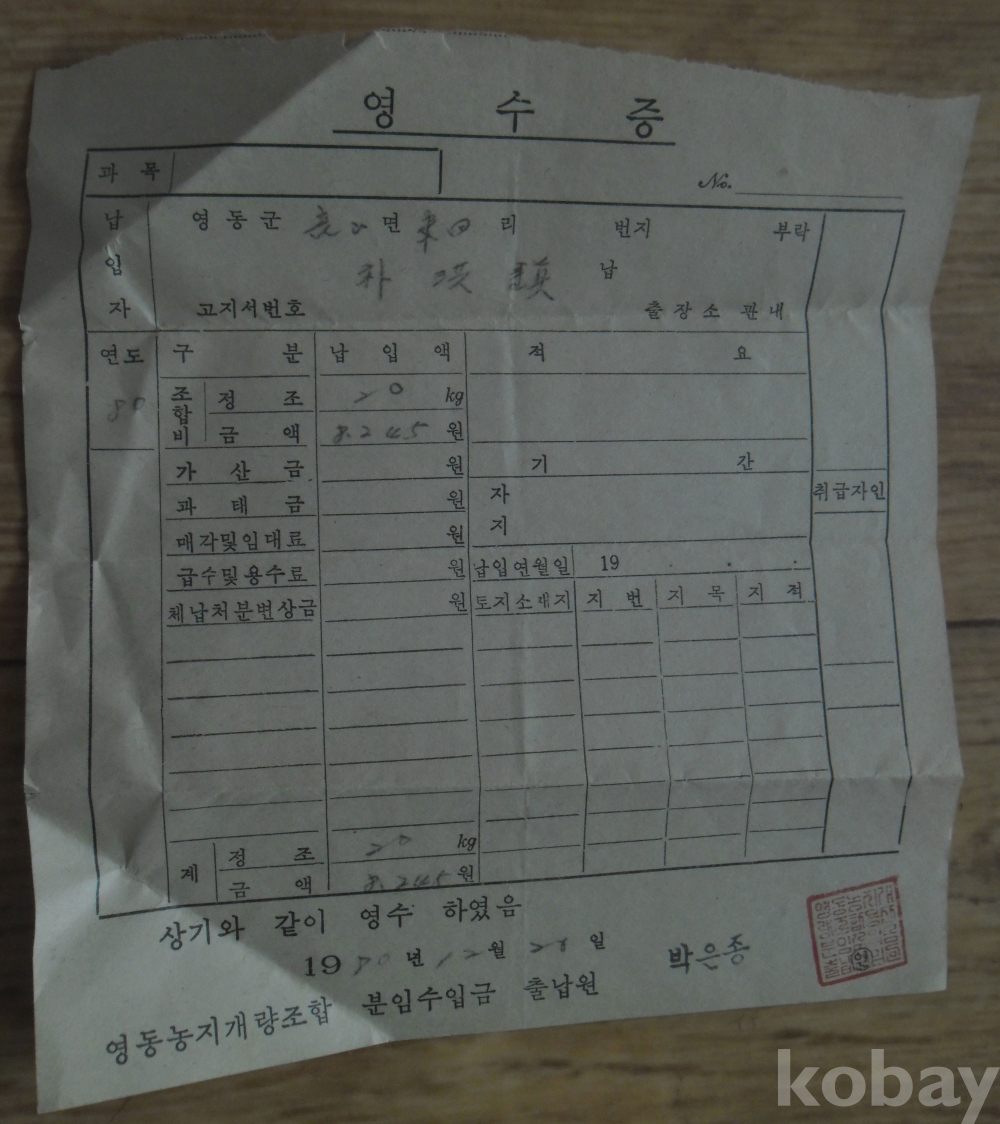 영 수 증
과 목
No.
납 입 자
영동군 면 東田 리 번지 부락
朴 洪 謨 납
고지서번호 출장소 관내
연도 구 분 납 입 액 적 요
80 조합비 정 조 20 kg
금 액 8.245 원
가 산 금 원 기 간
과 태 금 원 자
매각및임대료 원 지
취급자인
급수및용수료 원 납입연월일 19 . .
체납처분변상금 원 토지소재지 지 번 지 목 지 적
계 정 조 20 kg
금 액 8.245 원
상기와 같이 영수 하였음
1980년 12월 일
박은종
영동농지개량조합 분임수입금 출납원
kobay